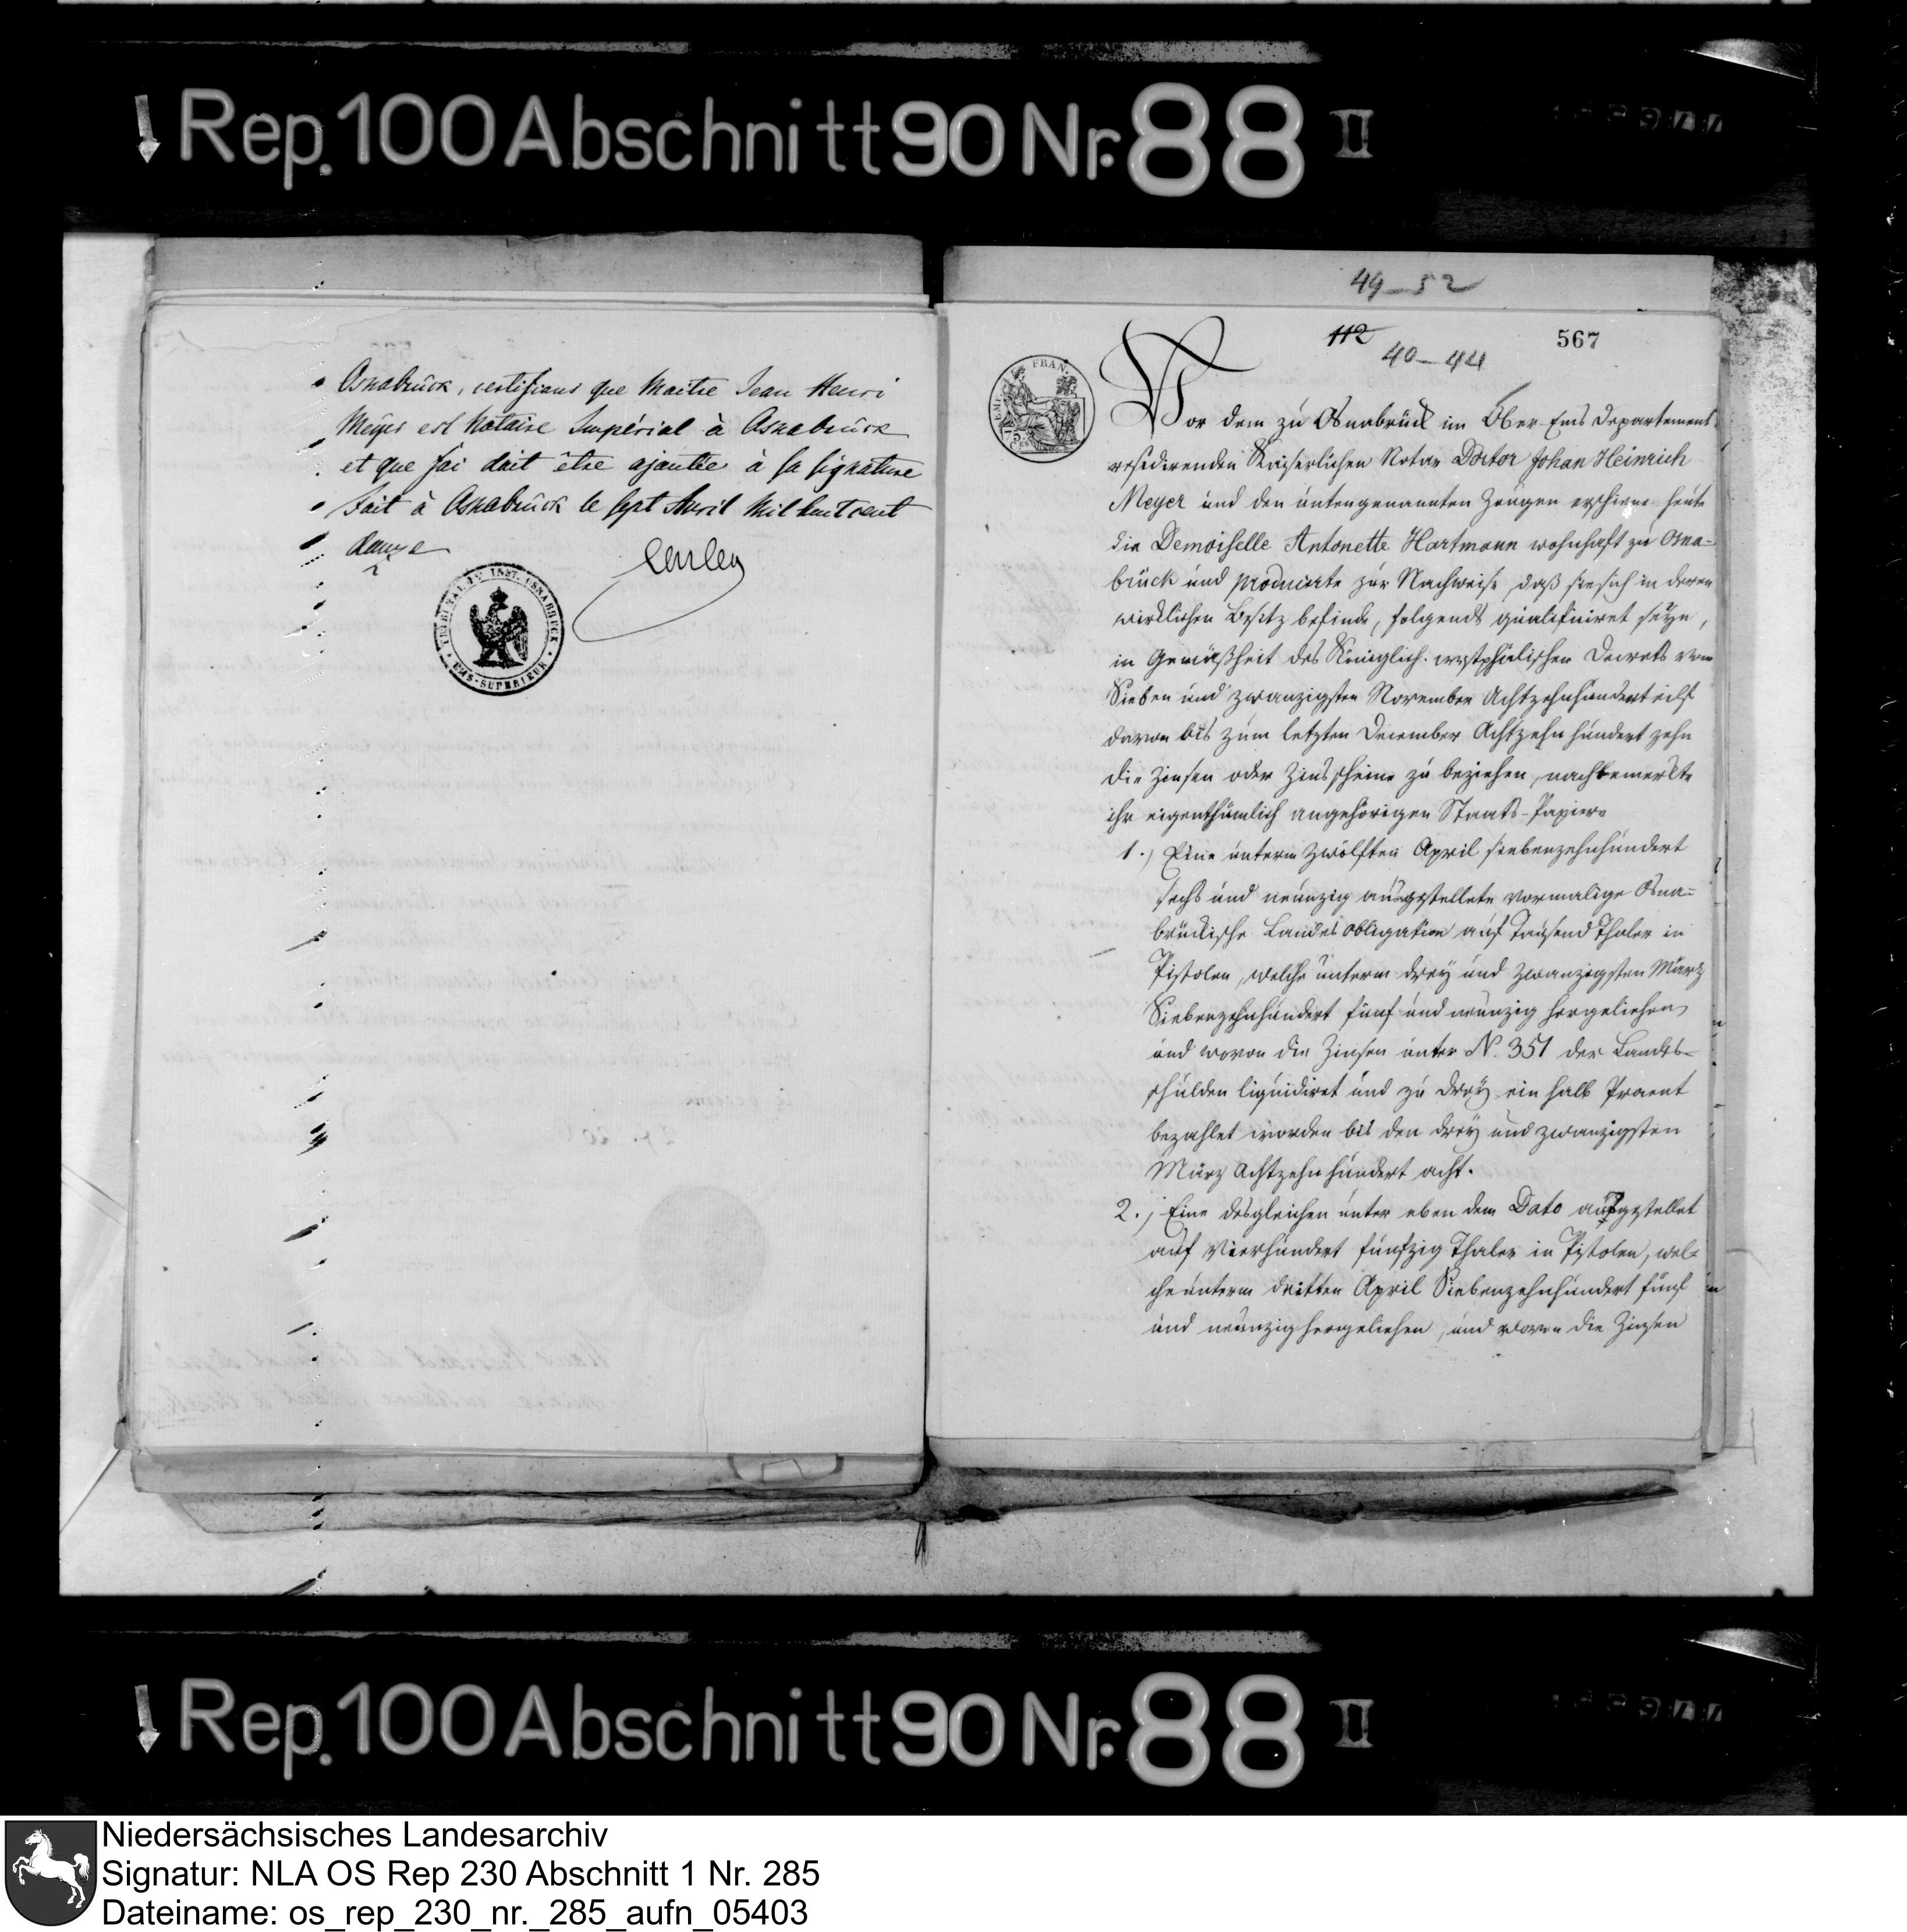 Rep. 100 Abschnitt 90 Nr. 88 II
Osnabrück, certifions que Maitre Jean Henri
Meyer est Notaire Impérial à Osnabrück
et que foi doit être ajoutée à sa signature
fait à Osnabrück le sept Avril Mil huit cent
douze
TRIBUNAL DE I. INST. OSNABRUCK
EMS-SUPERIEUR
49-52
112
567
40-44
FRAN.
75
Vor dem zu Osnabrück im Ober-Ems Departement
residirenden Kaiserlichen Notar Doctor Johan Heinrich
Meyer und den untengenannten Zeugen erschiene heute
die Demoiselle Antonette Hartmann wohnhaft zu Osna=
brück und producirte zur Nachweise, daß sie sich in deren
wirklichen Besitz befinde, folgends qualificiret seyn,
in Gemäßheit des Königlich-westphälischen Decrets vom
Sieben und zwanzigsten November Achtzehnhundert eilf
davon bis zum letzten December Achtzehn hundert zehn
die Zinsen oder Zinsscheine zu beziehen, nachbemerkte
ihr eigenthümlich angehörigen Staats-Papiere
1.) Eine unterm zwölften April siebenzehnhundert
sechs und neunzig ausgestellete vormalige Osna=
brückische Landes obligation auf Tausend Thaler in
Pistolen, welche unterm drey und zwanzigsten März
Siebenzehnhundert fünf und neunzig hergeliehen,
und wovon die Zinsen unter N. 351 der Landes=
schulden liquidiret und zu drey ein halb Procent
bezahlet worden bis den drey und zwanzigsten
März Achtzehn hundert acht.
2.) Eine desgleichen unter eben dem Dato ausgestellet
auf Vierhundert fünfzig Thaler in Pistolen, wel=
che unterm dritten April Siebenzehnhundert fünf
und neunzig hergeliehen, und wovon die Zinsen
Rep. 100 Abschnitt 90 Nr. 88 II
Niedersächsisches Landesarchiv
Signatur: NLA OS Rep 230 Abschnitt 1 Nr. 285
Dateiname: os_rep_230_nr._285_aufn_05403